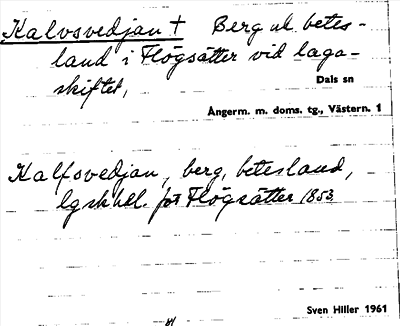 Kalvsvedjan † Berg ul. betes-
land i Flögsätter vid laga-
skiftet,
Dals sn
Ångerm. m. doms. tg., Västern. 1
Kalfsvedjan, berg, betesland,
lgsk hdl. för Flögsätter 1853.
Sven Hiller 1961